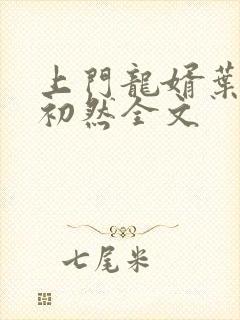 上門龍婿葉
初然全文
七尾米